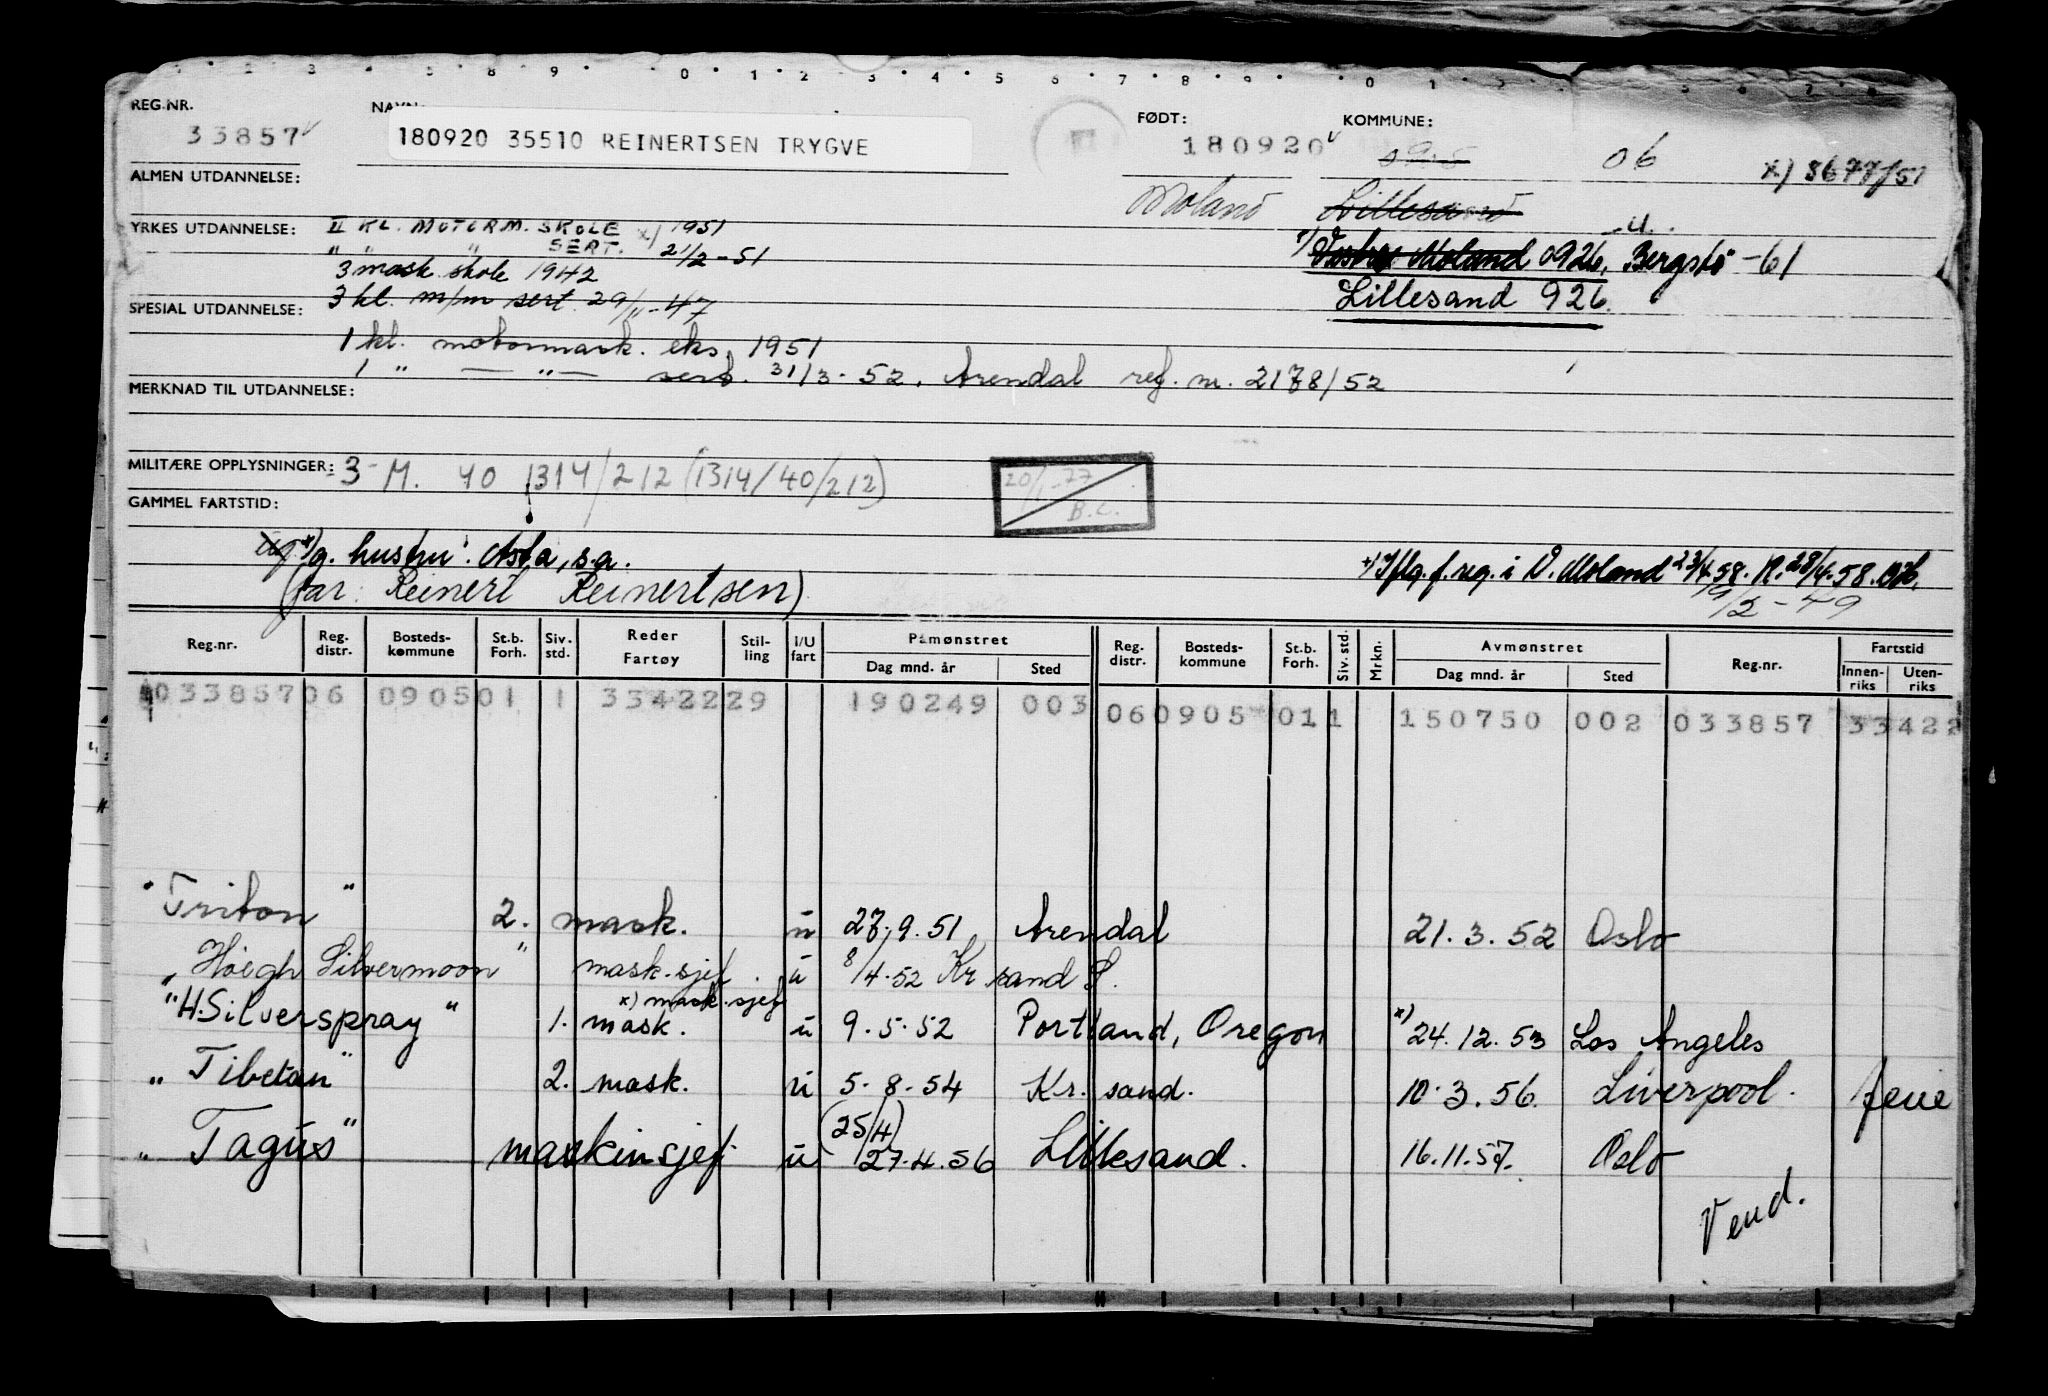 REG.NR. NAVN: FØDT: KOMMUNE:
33857 180920 35510 REINERTSEN TRYGVE 180920 06 x) 8677/51
ALMEN UTDANNELSE:
Moland Lillesand
YRKES UTDANNELSE: II KL. MOTORM. SKOLE x) 1951
" " " SERT. 21/2-51
Moland 0926, Bergstø -61
3 mask skole 1942
3 kl. m/m sert. 29/11-47
Lillesand 926.
SPESIAL UTDANNELSE:
1 kl. motormask. eks. 1951
1 " — " — sert. 31/3-52. Arendal ref. nr. 2178/52
MERKNAD TIL UTDANNELSE:
MILITÆRE OPPLYSNINGER: 3-M. 40 1314/212 (1314/40/212)
20/1-77
B.L.
GAMMEL FARTSTID:
g. hustru: Asta, s.a.
x) Iflg. f. reg. i V. Moland 23/4.58.
(far: Reinert Reinertsen)
19/2-49
Reg.nr. Reg. distr. Bosteds-kommune St.b. Forh. Siv. std. Reder Fartøy Stil-ling I/U fart Påmønstret Dag mnd. år Sted Reg. distr. Bosteds-kommune St.b. Forh. Siv. std. Mrkn. Avmønstret Dag mnd. år Sted Reg.nr. Fartstid Innen-riks Uten-riks
033857 06 0905 01 1 3342229 190249 003 06 0905 01 1 150750 002 033857 33422
"Triton" 2. mask. u 27.9.51 Arendal 21.3.52 Oslo
"Höegh Silvermoon" mask.sjef. u 8/4.52 Kr sand S.
x) mask.sjef
"H.Silverspray" 1. mask. u 9.5.52 Portland, Oregon x) 24.12.53 Los Angeles
"Tibetan" 2. mask. u 5.8.54 Kr. sand. 10.3.56. Liverpool. ferie
(25/4)
"Tagus" maskinsjef. u 27.4.56 Lillesand. 16.11.57. Oslo
Vend.